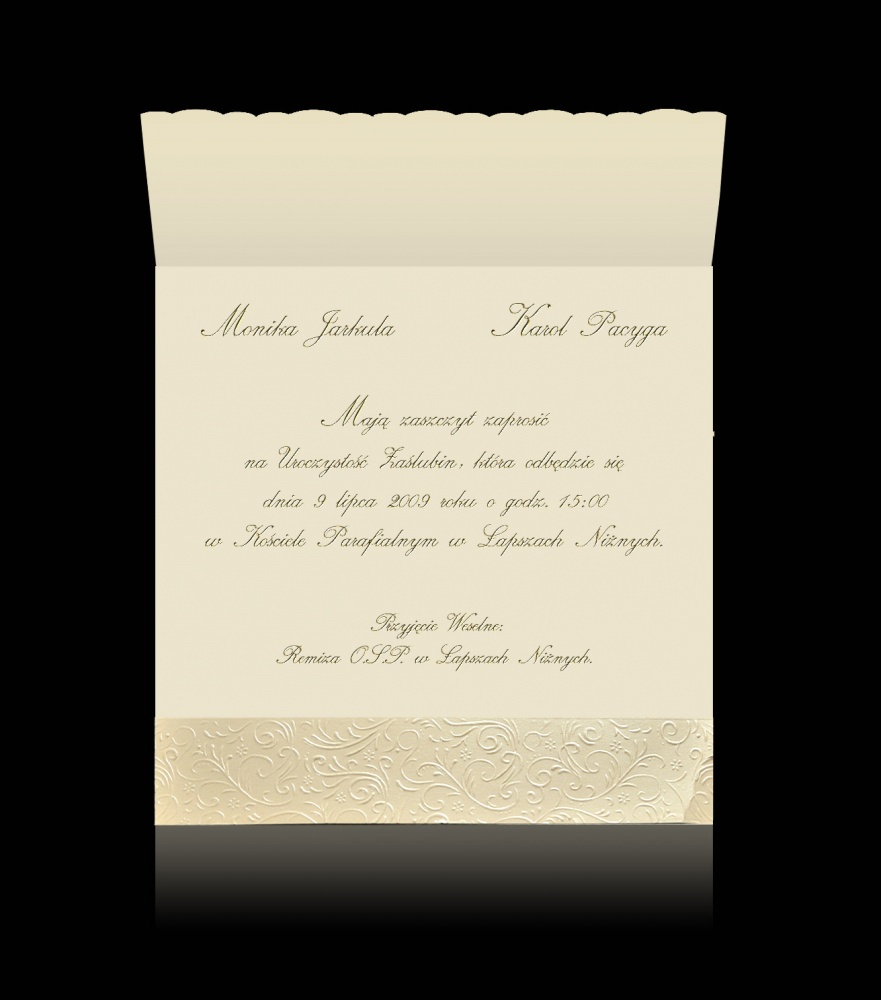 Monika Jarkula Karol Pacyga
Mają zaszczyt zaprosić
na Uroczystość Zaślubin, która odbędzie się
dnia 9 lipca 2009 roku o godz. 15:00
w Kościele Parafialnym w Łapszach Niżnych.
Przyjęcie Weselne:
Remiza O.S.P. w Łapszach Niżnych.